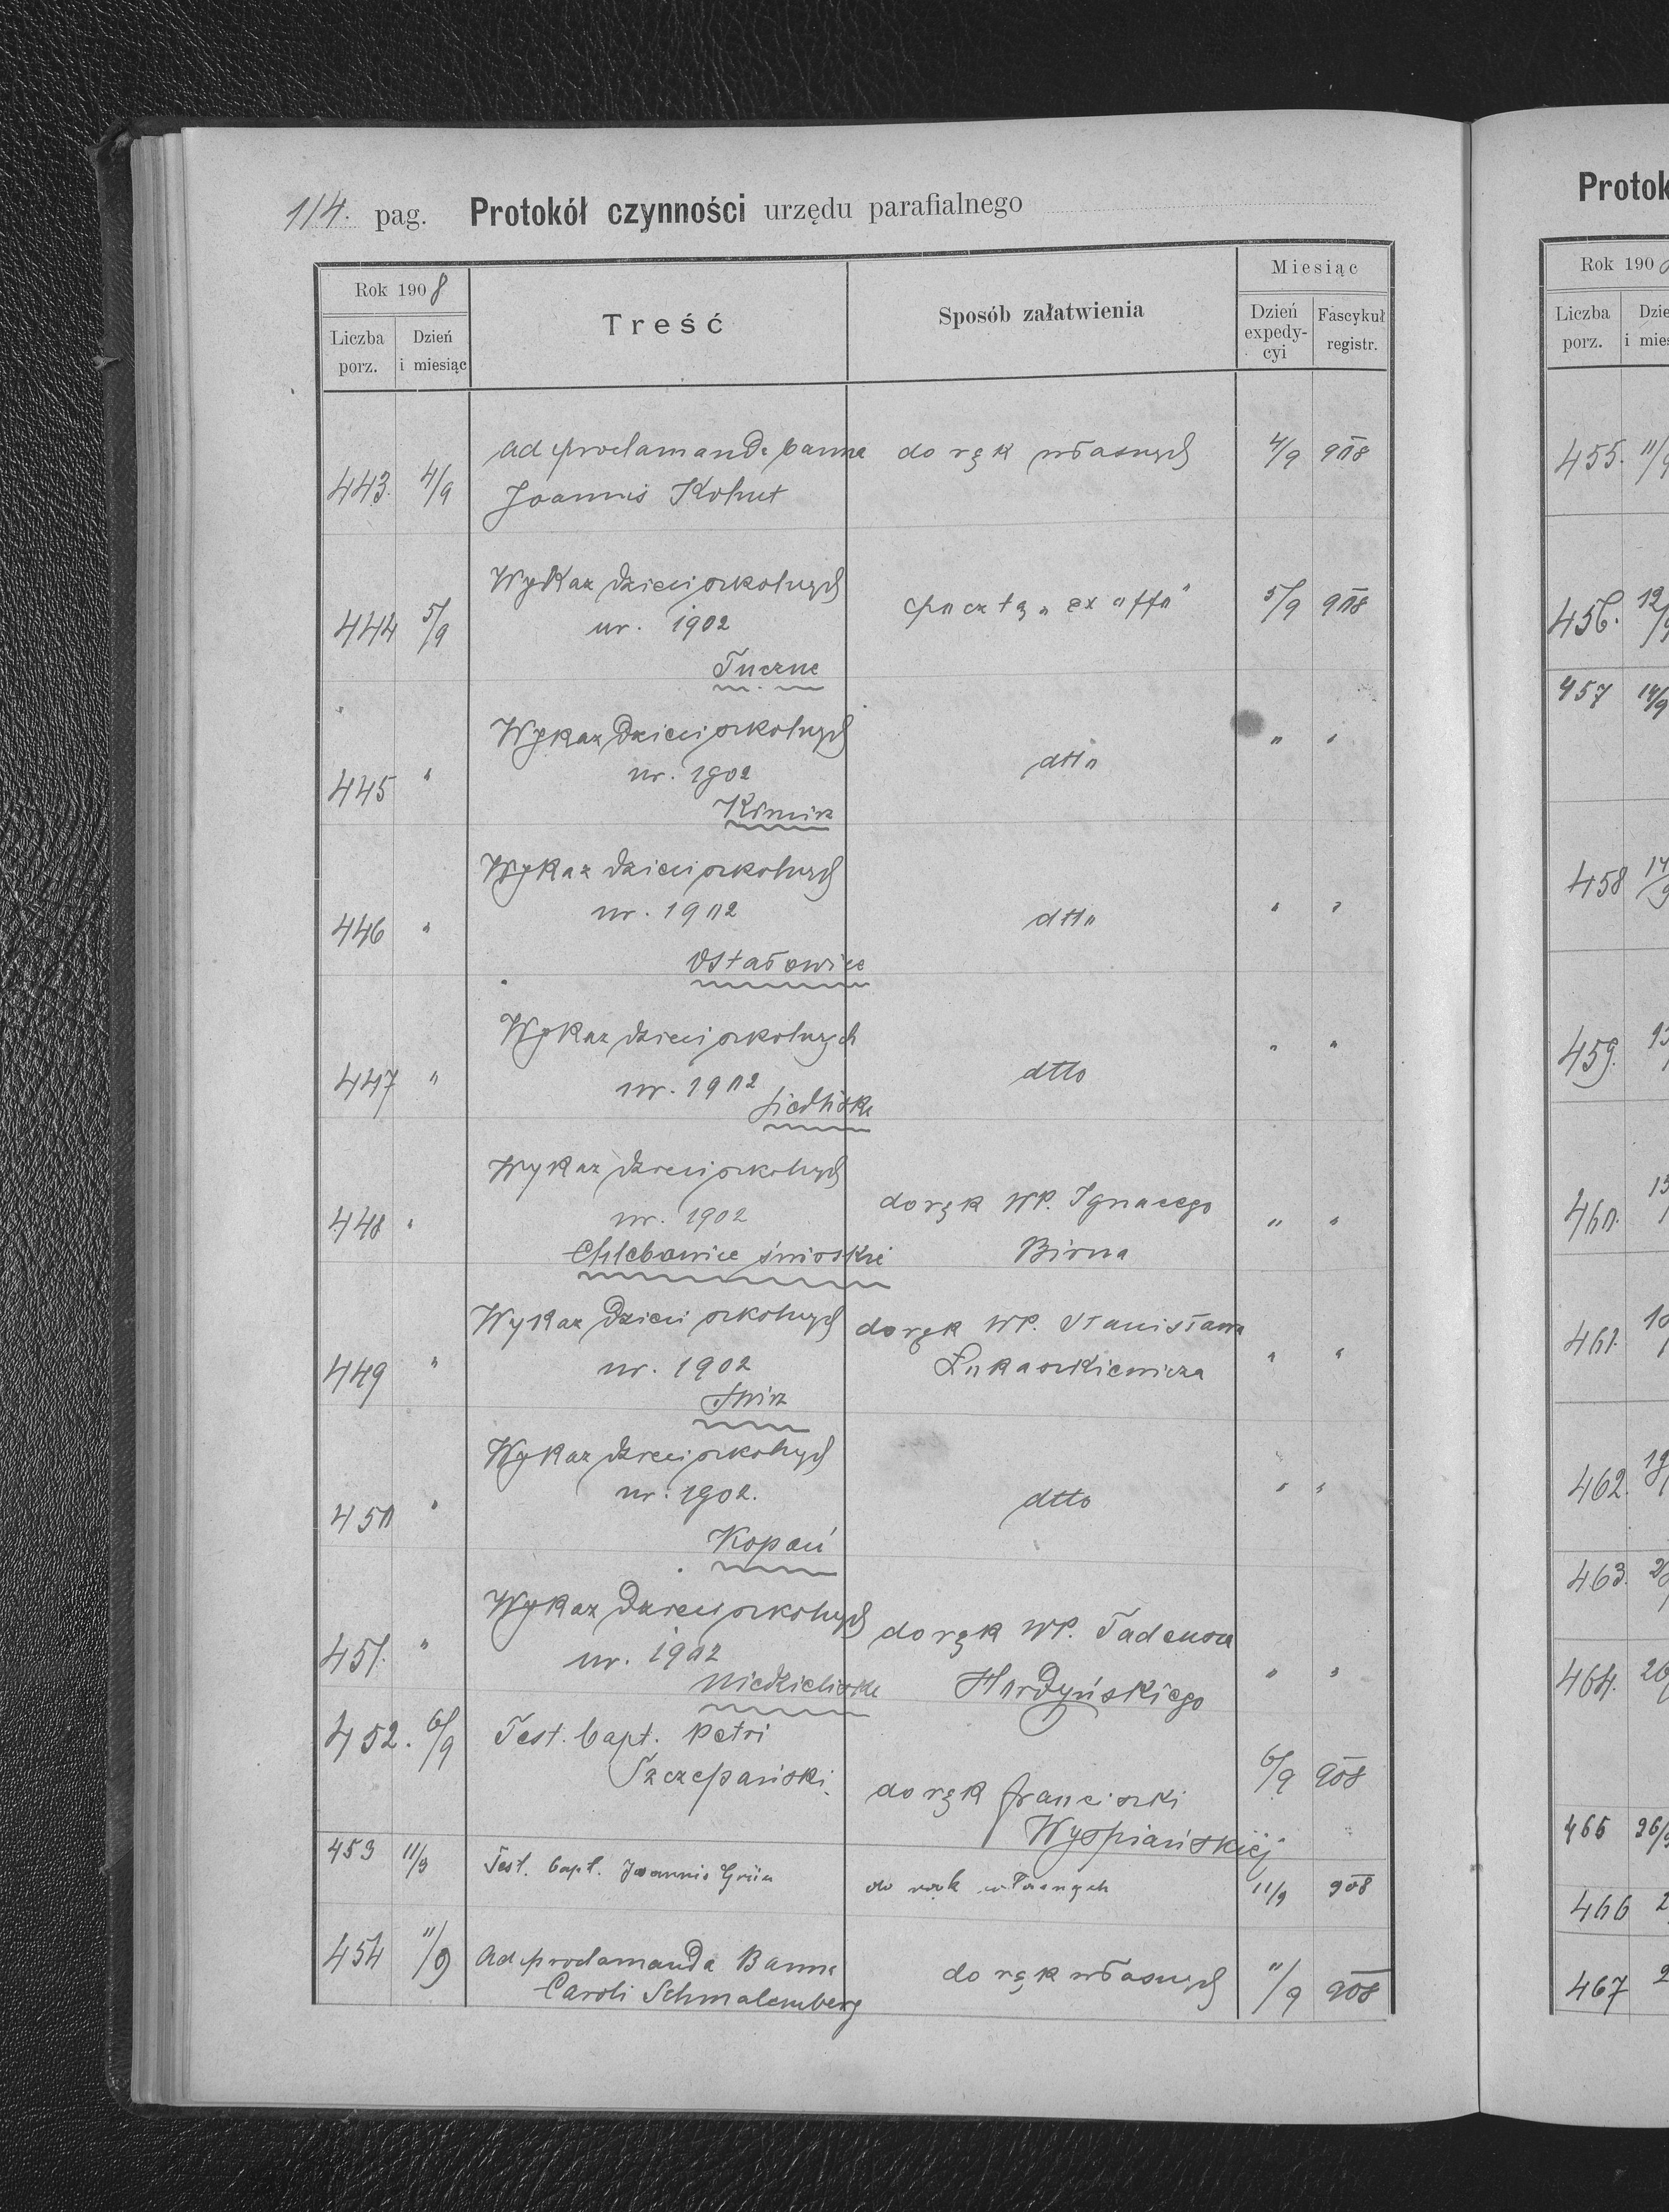 114. pag. Protokół czynności urzędu parafialnego
Rok 1908
Treść
Sposób załatwienia
Miesiąc
Liczba porz.
Dzień i miesiąc
Dzień expedy-cyi
Fascykuł registr.
443. 4/9 Ad proclamanda banna do rąk własnych 4/9 908
Joannis Kohut
444 5/9 Wykaz dzieci szkolnych pocztą "ex offo" 5/9 908
ur. 1902
Tuczne
445 " Wykaz dzieci szkolnych dtto " "
ur. 1902
Kimirz
446 " Wykaz dzieci szkolnych dtto " "
ur. 1902
Ostałowice
447 " Wykaz dzieci szkolnych dtto " "
ur. 1902
Siedliska
448 " Wykaz dzieci szkolnych do rąk WP. Ignacego " "
ur. 1902 Birna
Chlebowice świrskie
449 " Wykaz dzieci szkolnych do rąk WP. Stanisława " "
ur. 1902 Łukaszkiewicza
Świrz
450 " Wykaz dzieci szkolnych dtto " "
ur. 1902.
Kopań
451. " Wykaz dzieci szkolnych do rąk WP. Tadeusza " "
ur. 1902 Hordyńskiego
Niedzieliska
452. 6/9 Test. bapt. Petri do rąk Franciszki 6/9 908
Szczepański. Wyspiańskiej
453 11/9 Test. bapt. Joannis Grün do rąk własnych 11/9 908
454 11/9 Ad proclamanda Banna do rąk własnych 11/9 908
Caroli Schmalemberg
Protok
Rok 190
Liczba porz.
455. 11/9
456. 12/9
457 14/9
458 14/9
459.
460.
461.
462.
463.
464.
465
466
467